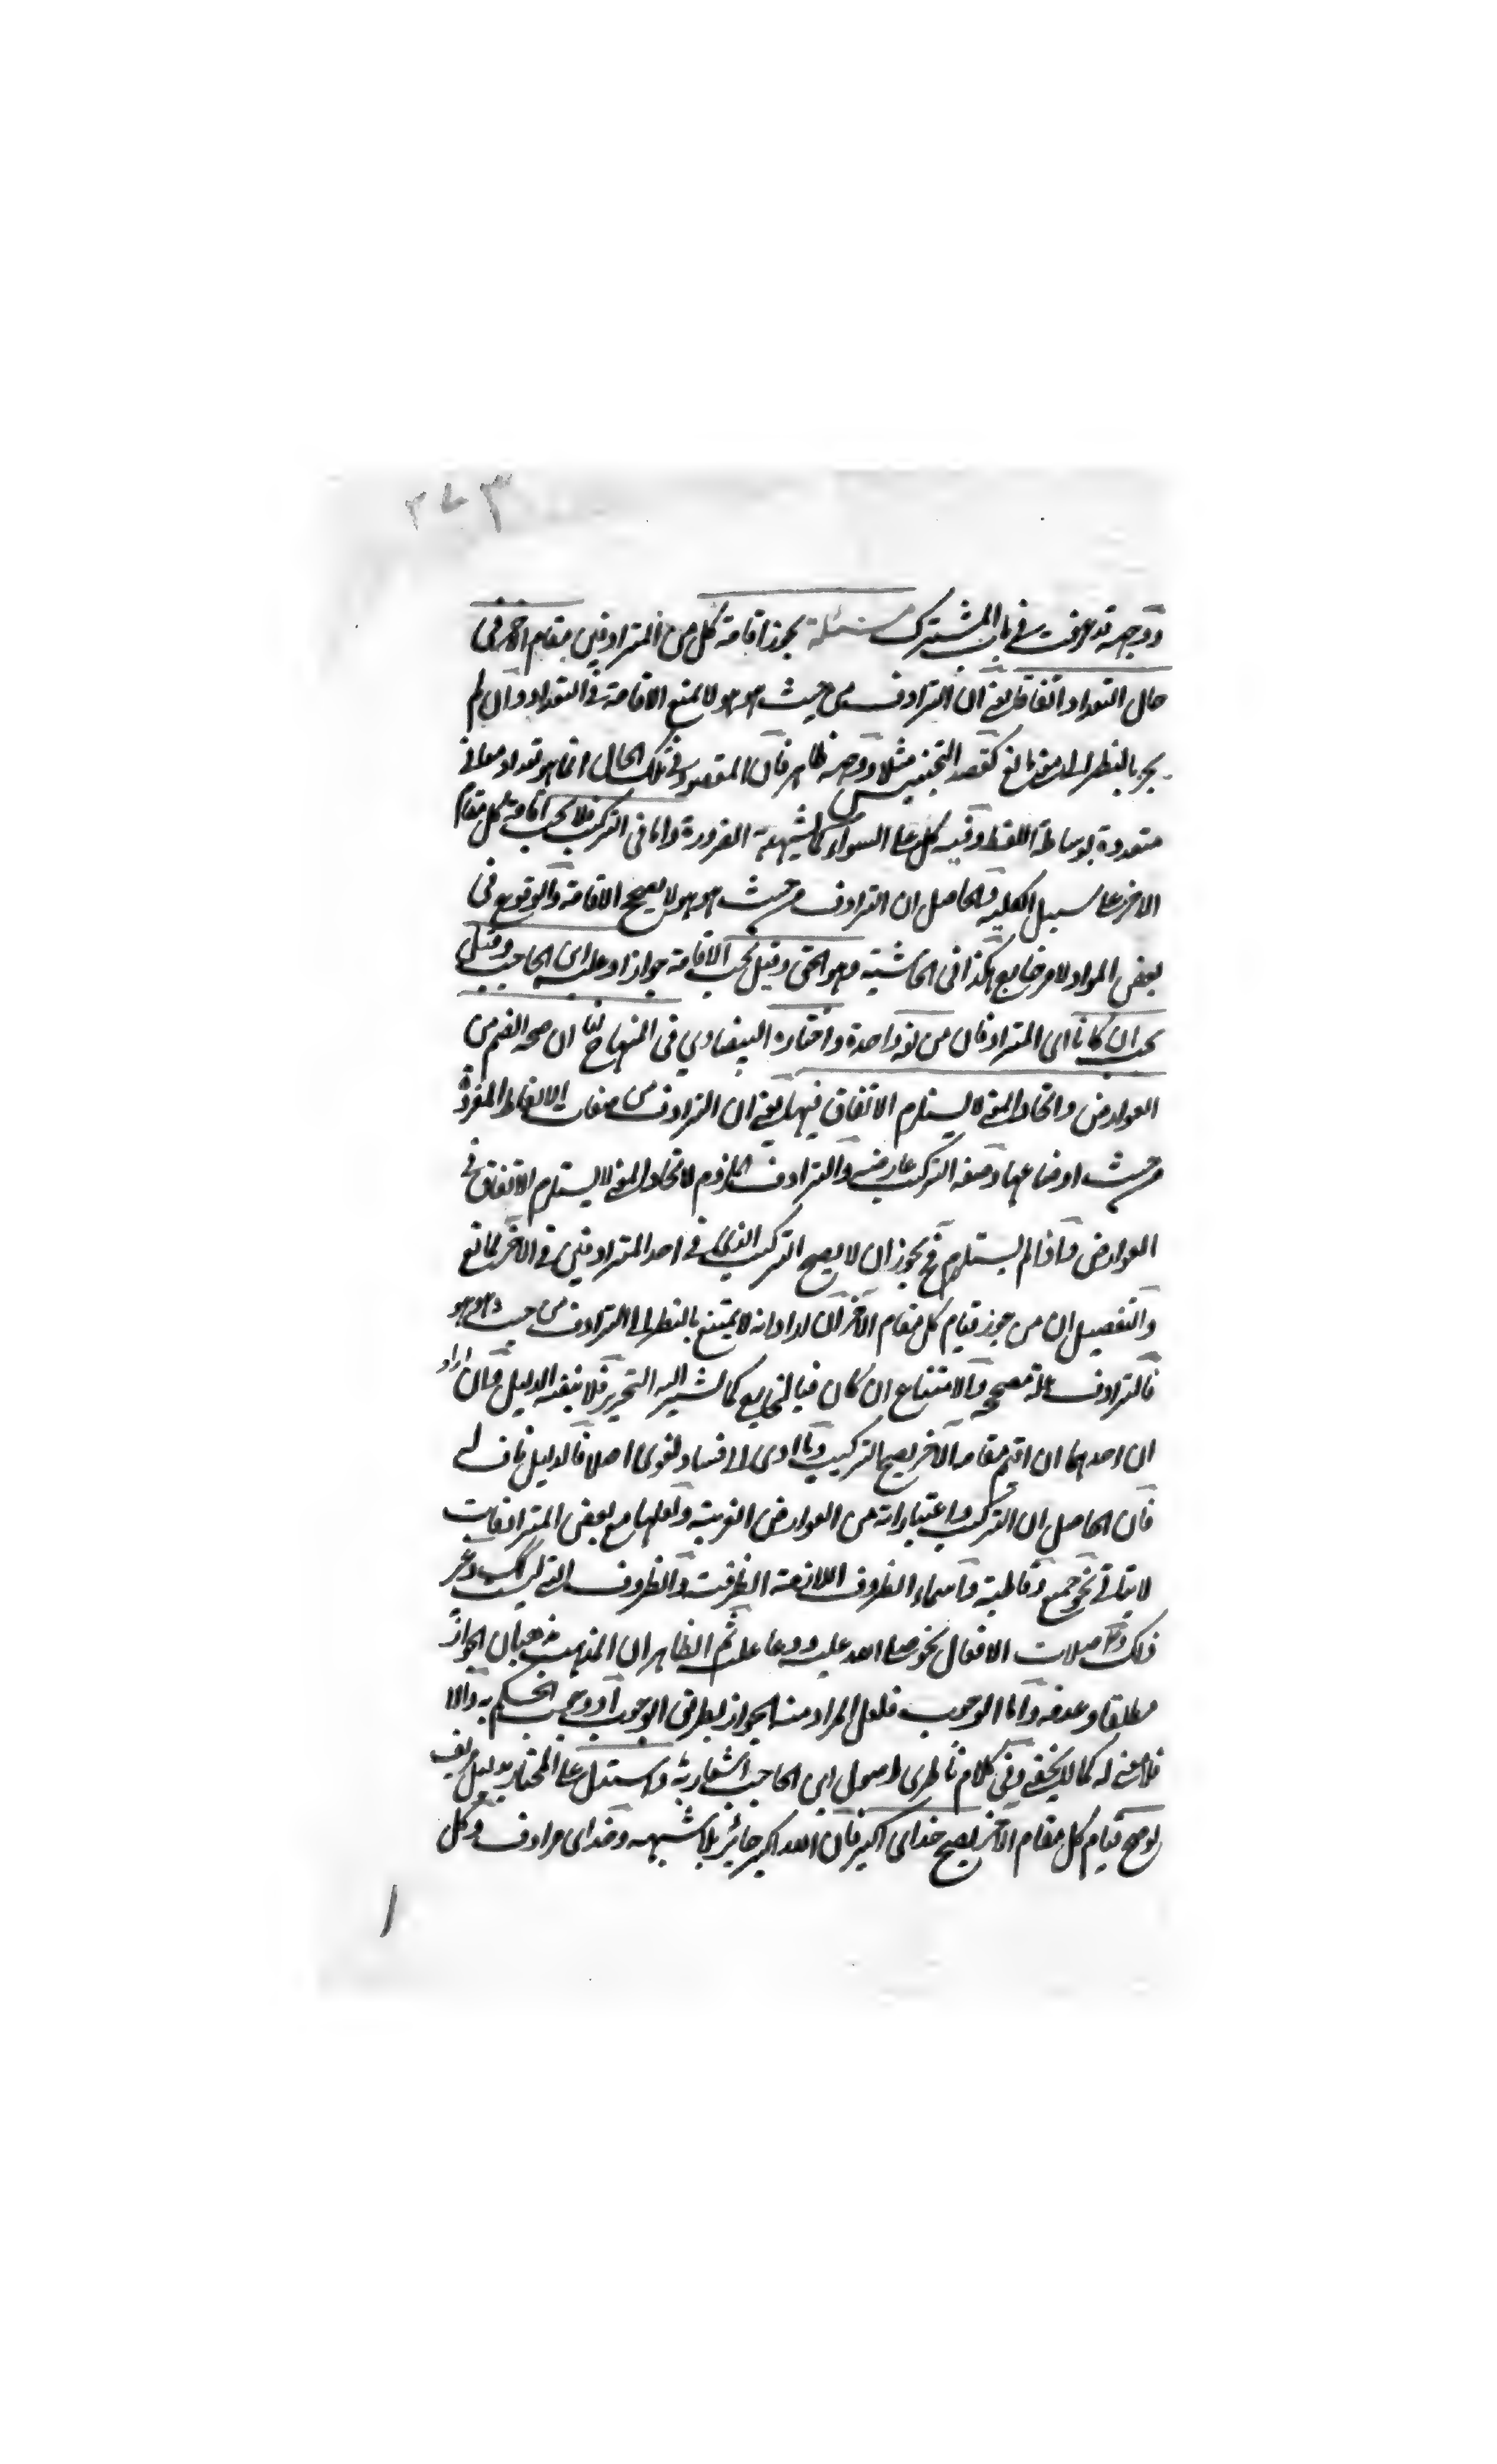 ٣٧٣
ووجهه قد عرفت في باب المشترك مسئلة يجوز اقامة كل من المترادفين مقام الآخر في
حال التعداد اتفاقا يعنى ان الترادف من حيث هو هو لا يمنع الاقامة في التعداد وان لم
يجز بالنظر الى مانع كقصد التجنيس مثلا ووجهه ظاهر فان المقصود في تلك الحال انما هو تعداد معاني
متعددة بوساطة اللفظ وفيه كل على السواء كما يشهد به الضرورة واما في التركيب فلا يجب اقامة كل مقام
الآخر على سبيل الكلية والحاصل ان الترادف من حيث هو هو لا يصحح الاقامة والوقوع في
بعض المواد لامر خارج هكذا في الحاشية وهو الحق وقيل يجب الاقامة جوازا وعليه ابن الحاجب وقيل
يجب ان كانا اى المترادفان من لغة واحدة واختاره البيضاوي في المنهاج لنا ان صحة الضم من
العوارض واتحاد المعنى لا يستلزم الاتفاق فيها يعنى ان الترادف من صفات الالفاظ المفردة
من حيث اوضاعها وصفة التركيب عارضة والترادف الملزوم لاتحاد المعنى لا يستلزم الاتفاق في
العوارض واذا لم يستلزم فح يجوز ان لا يصح التركيب في احد المترادفين في الآخر لمانع
والتفصيل ان من جوز قيام كل مقام الآخر ان اراد انه لا يمتنع بالنظر الى الترادف من حيث هو هو
فالترادف علة مصححة والامتناع ان كان فبالخارج كما يشير اليه التحرير فلا ينفيه الدليل وان اراد
ان احدهما ان اقيم مقام الآخر يصح التركيب وما ادى الى فساد لغوى اصلا فالدليل ناف له
فان الحاصل ان التركيب واعتباراته من العوارض الغريبة ولعلها مع بعض المترادفات
لا يتأتى نحو جميع وقاطبة واسماء الظروف اللازمة الظرفية والظروف التي ليست وغير
ذلك وصلات الافعال نحو صلى الله عليه ودعا عليه ثم الظاهر ان المذهب مذهبان الجواز
مطلقا وعدمه واما الوجوب فلعل المراد منه الجواز بطريق الوجوب او وجوب الحكم به والا
فلا معنى له كما لا يخفى وفي كلام ناظرى اصول ابن الحاجب اشعار به واستدل على المختار بدليل مزيف
لو صح قيام كل مقام الآخر يصح خداى اكبر فان الله اكبر جائز بلا شبهة وخداى مرادف وكل
١